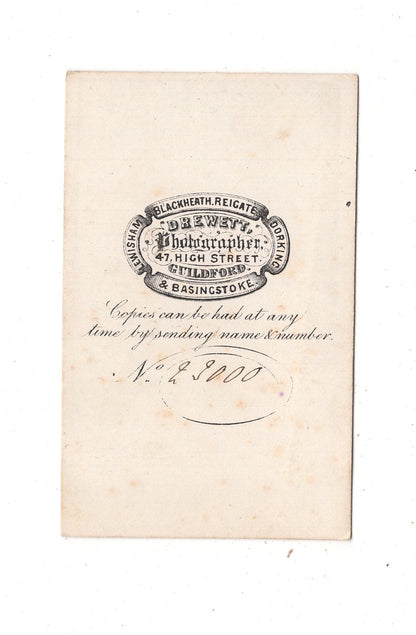 BLACKHEATH. REIGATE
LEWISHAM
DORKING
DREWETT.
Photographer.
47, HIGH STREET
GUILDFORD.
& BASINGSTOKE.
Copies can be had at any
time by sending name & number.
No. 23000